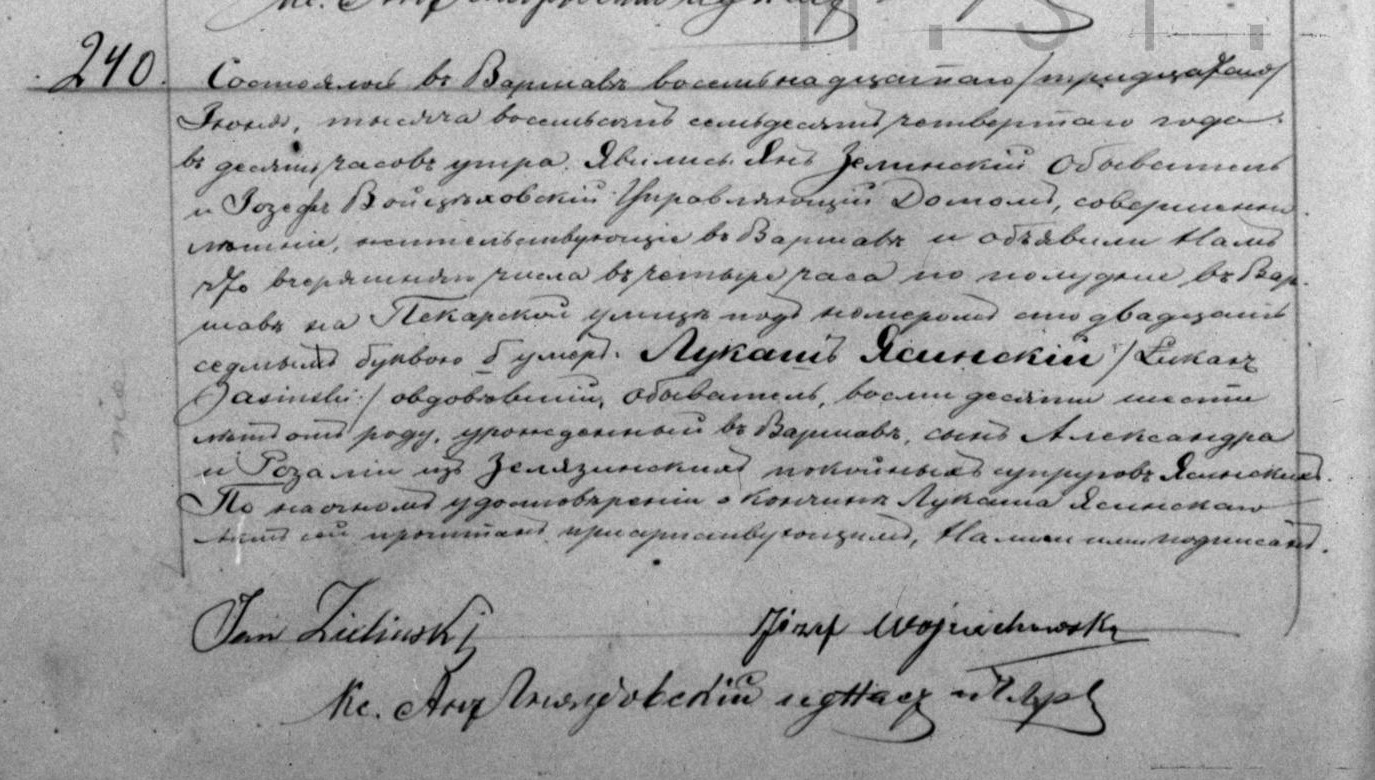 240. Состоялось въ Варшавѣ восемьнадцатаго /тридцатаго/
Іюня, тысяча восемьсотъ семьдесятъ четвертаго года
въ десять часовъ утра. Явились Янъ Зелинскій Обыватель
и Іозефъ Войцѣховскій Управляющій Домомъ, совершенно
лѣтніе, жительствующіе въ Варшавѣ и объявили Намъ
что вчерашняго числа въ четыре часа по полудне въ Вар-
шавѣ на Пекарской улицѣ подъ номеромъ сто двадцать
седмымъ буквою б умеръ Лукашъ Ясинскій /Łukasz
Jasiński/ овдовѣвшій, обыватель, восми десяти шести
лѣтъ отъ роду, урожденный въ Варшавѣ, сынъ Александра
и Розаліи изъ Зелязинскихъ покойныхъ супруговъ Ясинскихъ.
По наочномъ удостовѣреніи о кончинѣ Лукаша Ясинскаго
актъ сей прочитанъ присутствующимъ, Нами и ими подписанъ.
Jan Zieliński Józef Wojciechowski
Кс. Анд